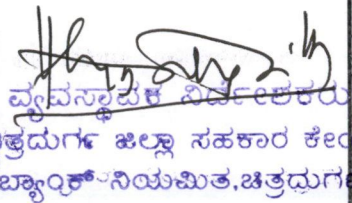 ವ್ಯವಸ್ಥಾಪಕ ನಿರ್ದೇಶಕರು
ತ್ರದುರ್ಗ ಜಿಲ್ಲಾ ಸಹಕಾರ ಕೇಂ
ಬ್ಯಾಂಕ್ ನಿಯಮಿತ,ಚಿತ್ರದುರ್ಗ